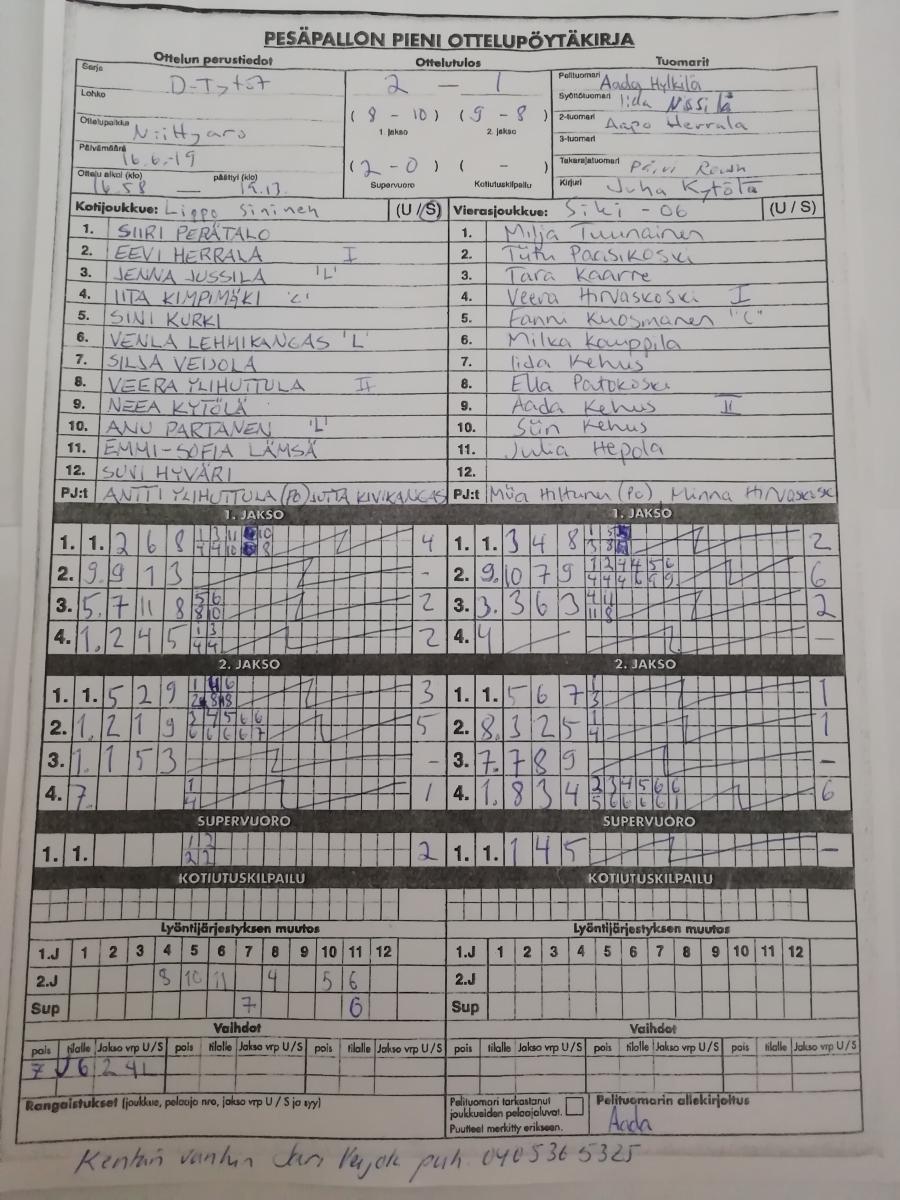 PESÄPALLON PIENI OTTELUPÖYTÄKIRJA
Ottelun perustiedot Ottelutulos Tuomarit
Sarja D-Tytöt 2 — 1 Pelituomari Aada Hylkilä
Lohko Syöttötuomari Iida
(8 - 10) (9 - 8) 2-tuomari Aapo Herrala
Ottelupaikka Niittyaro 1. jakso 2. jakso 3-tuomari
Päivämäärä 16.6.-19 (2 - 0) ( - ) Takarajatuomari Päivi
Ottelu alkoi (klo) 16.58 — päättyi (klo) 19.13 Supervuoro Kotiutuskilpailu Kirjuri Juha Kytölä
Kotijoukkue: Lippo Sininen (U/S) Vierasjoukkue: Siki - 06 (U / S)
1. SIIRI PERÄTALO 1. Milja Tuunainen
2. EEVI HERRALA I 2. Tütu Parisikoski
3. JENNA JUSSILA 'L' 3. Tara Kaarre
4. IITA KIMPIMÄKI 'L' 4. Veera Hirvaskoski I
5. SINI KURKI 5. Fanni Kuosmanen "C"
6. VENLA LEHMIKANGAS 'L' 6. Milka Kamppila
7. SILJA VEIJOLA 7. Iida Kehus
8. VEERA YLIHUTTULA II 8. Ella Patokoski
9. NEEA KYTÖLÄ 9. Aada Kehus II
10. ANU PARTANEN 'L' 10. Siiri Kehus
11. EMMI-SOFIA LÄMSÄ 11. Julia Hepola
12. SUVI HYVÄRI 12.
PJ:t ANTTI YLIHUTTULA (PO) JUTTA KIVIKANGAS PJ:t Miia Hiltunen (PC), Minna
1. JAKSO 1. JAKSO
1. 1. 2 6 8 4 1. 1. 3 4 8 2
2. 9. 9 1 3 - 2. 9. 10 7 9 6
3. 5. 7 11 8 2 3. 3. 3 6 3 2
4. 1. 2 4 5 2 4. 4 —
2. JAKSO 2. JAKSO
1. 1. 5 2 9 3 1. 1. 5 6 7 1
2. 1. 2 1 9 5 2. 8. 3 2 5 1
3. 1. 1 5 3 - 3. 7. 7 8 9 -
4. 7. 1 4. 1. 8 3 4 6
SUPERVUORO SUPERVUORO
1. 1. 2 1. 1. 1 4 5 -
KOTIUTUSKILPAILU KOTIUTUSKILPAILU
Lyöntijärjestyksen muutos Lyöntijärjestyksen muutos
1.J 1 2 3 4 5 6 7 8 9 10 11 12 1.J 1 2 3 4 5 6 7 8 9 10 11 12
2.J 8 10 11 4 5 6 2.J
Sup 7 6 Sup
Vaihdot Vaihdot
pois tilalle Jakso vrp U/S pois tilalle Jakso vrp U/S pois tilalle Jakso vrp U/S pois tilalle Jakso vrp U/S pois tilalle Jakso vrp U/S pois tilalle Jakso vrp U/S
7 6 2 4L
Rangaistukset (joukkue, pelaaja nro, jakso vrp U / S ja syy) Pelituomari tarkastanut joukkueiden pelaajaluvat. Pelituomarin allekirjoitus
Puutteet merkitty erikseen. Aada
Kentän vanhin Jari puh. 0405365325